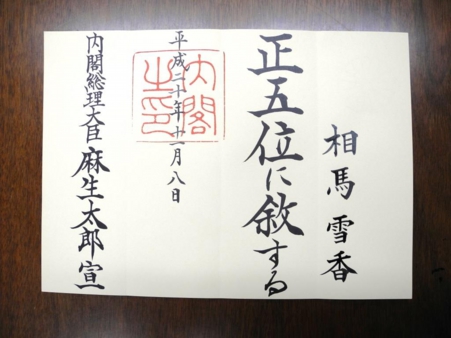 相馬雪香
正五位に敘する
平成二十年十一月八日
内閣之印
内閣総理大臣麻生太郎宣